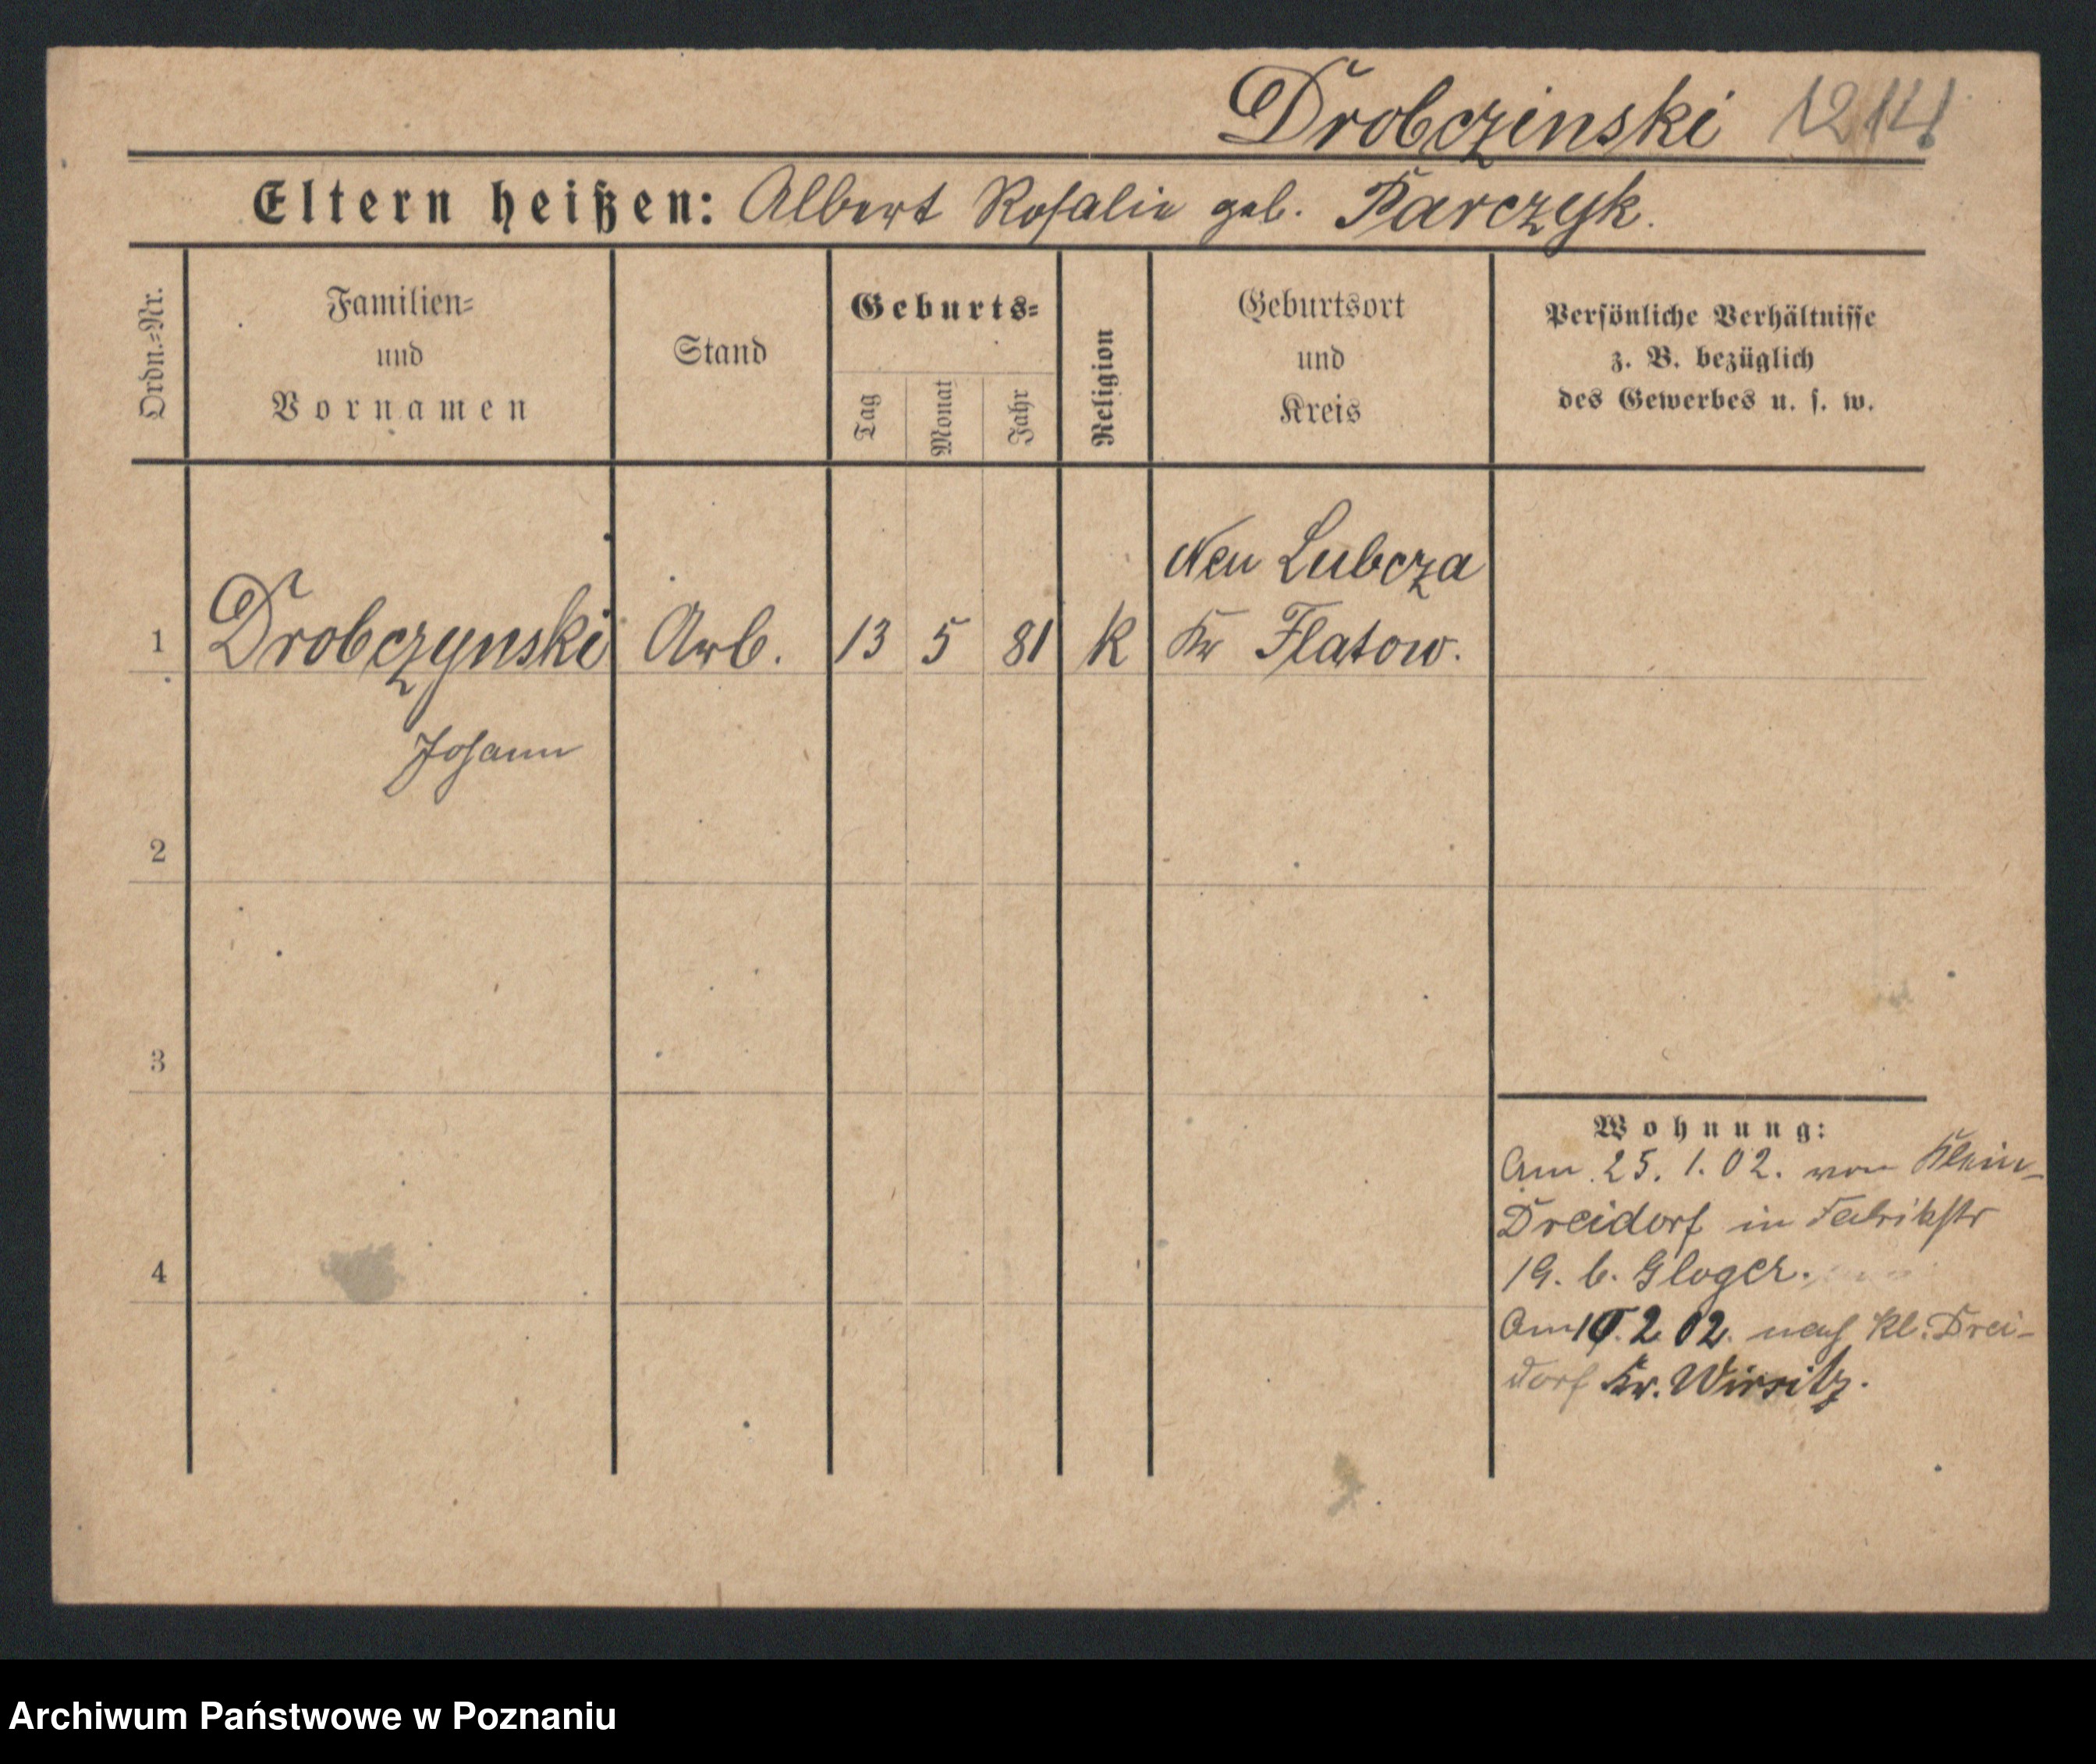 Drobczinski 1214
Eltern heißen: Albert Rosalie geb. Parczyk.
Ordn.=Nr.
Familien=
und
Vornamen
Stand
Geburts=
Tag
Monat
Jahr
Religion
Geburtsort
und
Kreis
Persönliche Verhältnisse
z. B. bezüglich
des Gewerbes u. s. w.
Neu Lubcza
1 Drobczynski Arb. 13 5 81 K Kr Flatow.
Johann
2
3
4
Wohnung:
Am 25. 1. 02. von Klein-
Dreidorf in Fabrikstr
19. b. Gloger.
Am 2 02. nach Kl. Drei-
dorf Kr. Wirsitz.
Archiwum Państwowe w Poznaniu